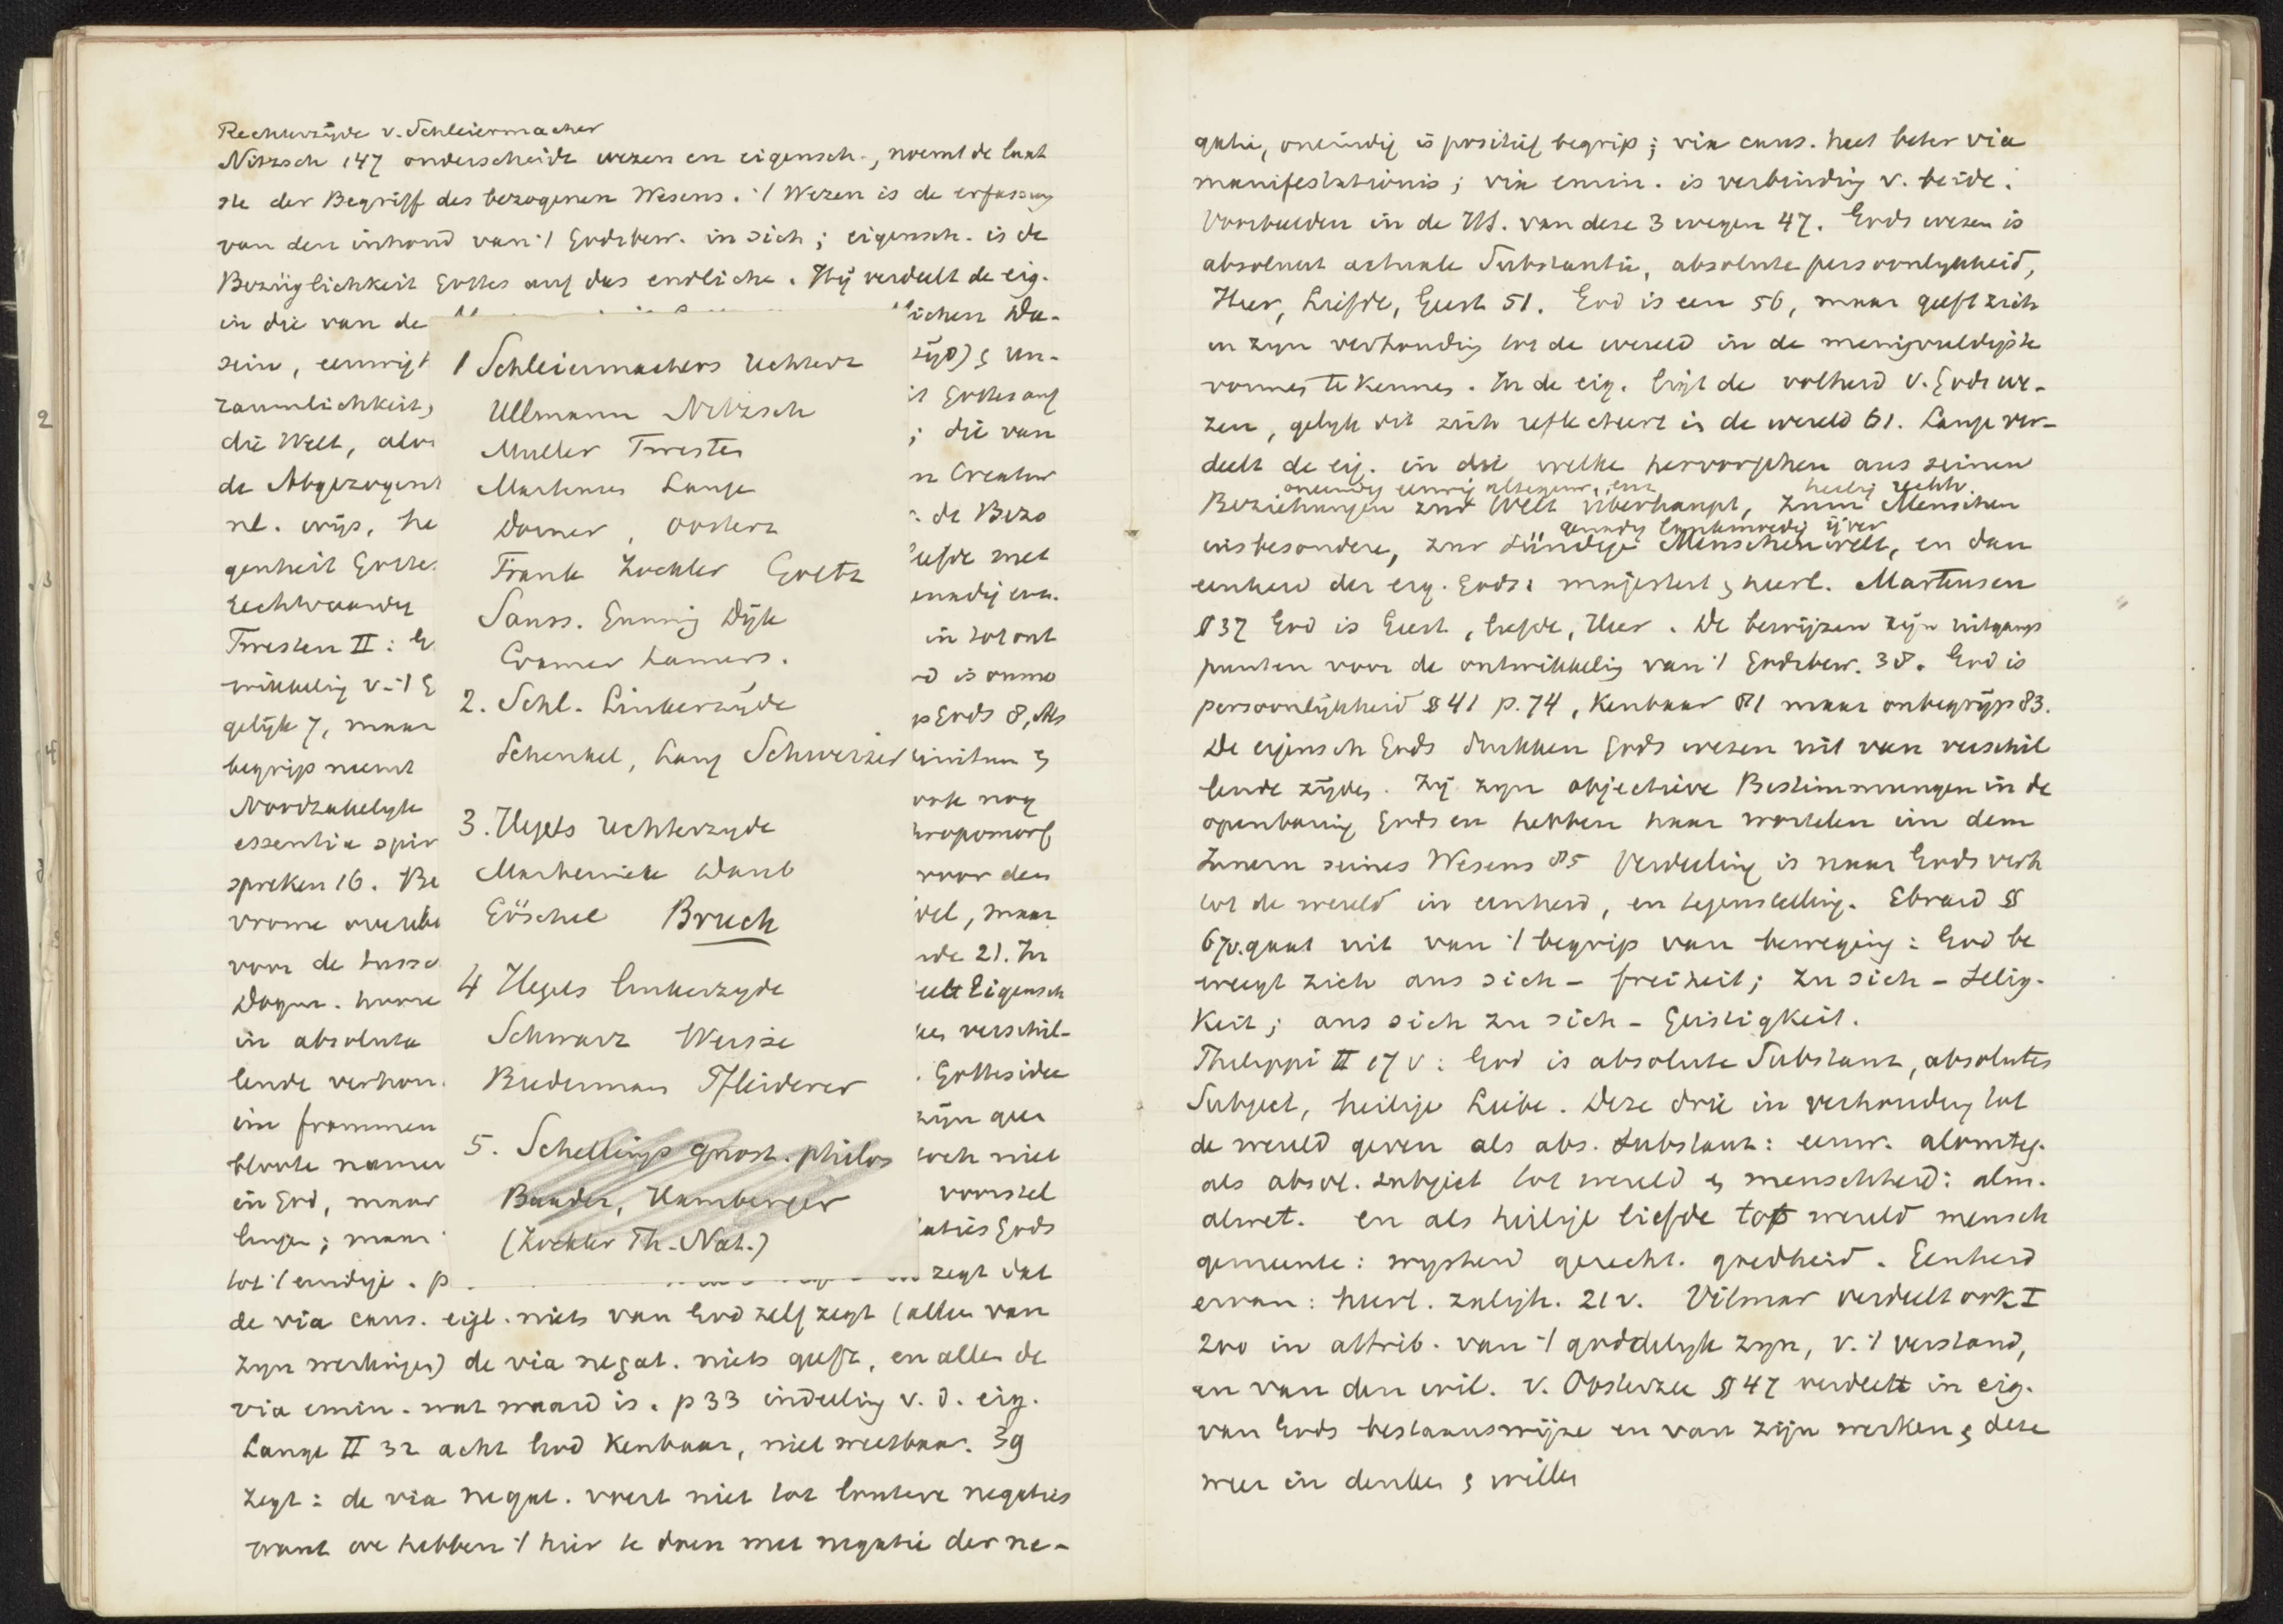 Rechterzijde v. Schleiermacher
Nitzsch 147 onderscheidt wezen en eigensch., noemt de laat
ste der Begriff des bezogenen Wesens. 't Wezen is de erfassung
van den inhoud van 't Godsbew. in sich; eigensch. is de
Bezüglichkeit Gottes auf das endliche. Hij verdeelt de eig.
in die van de
sein, eeuwigh
raumlichkeit,
die Welt, alom
de Abgezogenh
nl. wijs, he
genheit Gottes
rechtvaardig
Twesten II: G
wikkeling v. 't G
gelijk 7, maar
begrip neemt
Noodzakelijk
essentia spir
spreken 16. Be
vrome
voor de tussc
Dogm.
in absolute
lende verhou
im frommen
bloote namen
in God, maar
maar
tot 't eindige. p
lichen Da-
zijd) & un-
it Gottes auf
; die van
n Creatur
. de Bezo
liefde met
in tot ont
d is onmo
p Gods 8, Als
finitum &
ook nog
thropomorf
voor den
del, maar
nde 21. In
eelt Eigensch
les verschil-
. Gottesidee
zijn geen
toch niet
voorstel
aties Gods
zegt dat
1 Schleiermachers rechterz
Ullmann Nitzsch
Muller Twesten
Martensen Lange
Dorner, Oosterz
Frank Zockler Grétz
Sauss. Gunning Dijk
Cramer Lamers.
2. Schl. Linkerzijde
Schenkel, Lang Schweizer
3. Hegels rechterzyde
Marheineke Daub
Göschel Bruch
4 Hegels linkerzyde
Schwarz Weisse
Biedermann Pfleiderer
5. Schellings gnost. philos
Baader, Hamberger
(Zockler Th. Nat.)
de via caus. eigl. niets van God zelf zegt (alleen van
zyn werkingen) de via negat. niets geeft, en alleen de
via emin. wat waard is. p 33 indeeling v. d. eig.
Lange II 32 acht God kenbaar, niet weetbaar. 39
zegt: de via negat. voert niet tot lautere negaties
want we hebben 't hier te doen met negatie der ne-
gatie, oneindig is positief begrip; via caus. heet beter via
manifestationis; via emin. is verbinding v. beide.
Voorbeelden in de HS. van deze 3 wegen 47. Gods wezen is
absoluut actuale Substantie, absolute persoonlykheid,
Heer, Liefde, Geest 51. God is een 56, maar geeft zich
in zyn verhouding tot de wereld in de menigvuldigste
vormen te kennen. In de eig. ligt de volheid v. Gods we-
zen, gelyk dit zich reflecteert in de wereld 61. Lange ver-
deelt de eig. in drie welke hervorgehen aus seinen
oneindig eeuwig alomtegenw. enz heilig rechtv.
Beziehungen zur Welt überhaupt, zum Menschen
genadig lankmoedig ijver
insbesondere, zur sündige Menschenwelt, en dan
eenheid der eig. Gods: majesteit & heerl. Martensen
§ 37 God is Geest, liefde, Heer. De bewijzen zijn uitgangs
punten voor de ontwikkeling van 't Godsbew. 38. God is
persoonlijkheid § 41 p. 74, kenbaar 81 maar onbegrijp 83.
De eigensch Gods drukken Gods wezen uit van verschil
lende zijden. Zij zyn objective Bestimmungen in de
openbaring Gods en hebben haar wortelen im dem
Innern seines Wesens 85 Verdeeling is naar Gods verh
tot de wereld in eenheid, en tegenstelling. Ebrard §
67v. gaat uit van 't begrip van beweging: God be
weegt zich aus sich - freiheit; zu sich - Selig-
keit; aus sich zu sich - Geistigkeit.
Philippi II 17 v: God is absolute Substanz, absolutes
Subject, heilige Liebe. Deze drie in verhouding tot
de wereld geven als abs. Substanz: eeuw. alomteg.
als absol. subject tot wereld & menschheid: alm.
alwet. en als heilige liefde tot wereld mensch
gemeente: wysheid gerecht. goedheid. Eenheid
ervan: heerl. zaligh. 21v. Vilmar verdeelt ook I
200 in attrib. van 't goddelyk zyn, v. 't verstand,
en van den wil. v. Oosterzee § 47 verdeelt in eig.
van Gods bestaanswijze en van zijn werken & deze
weer in denken & willen